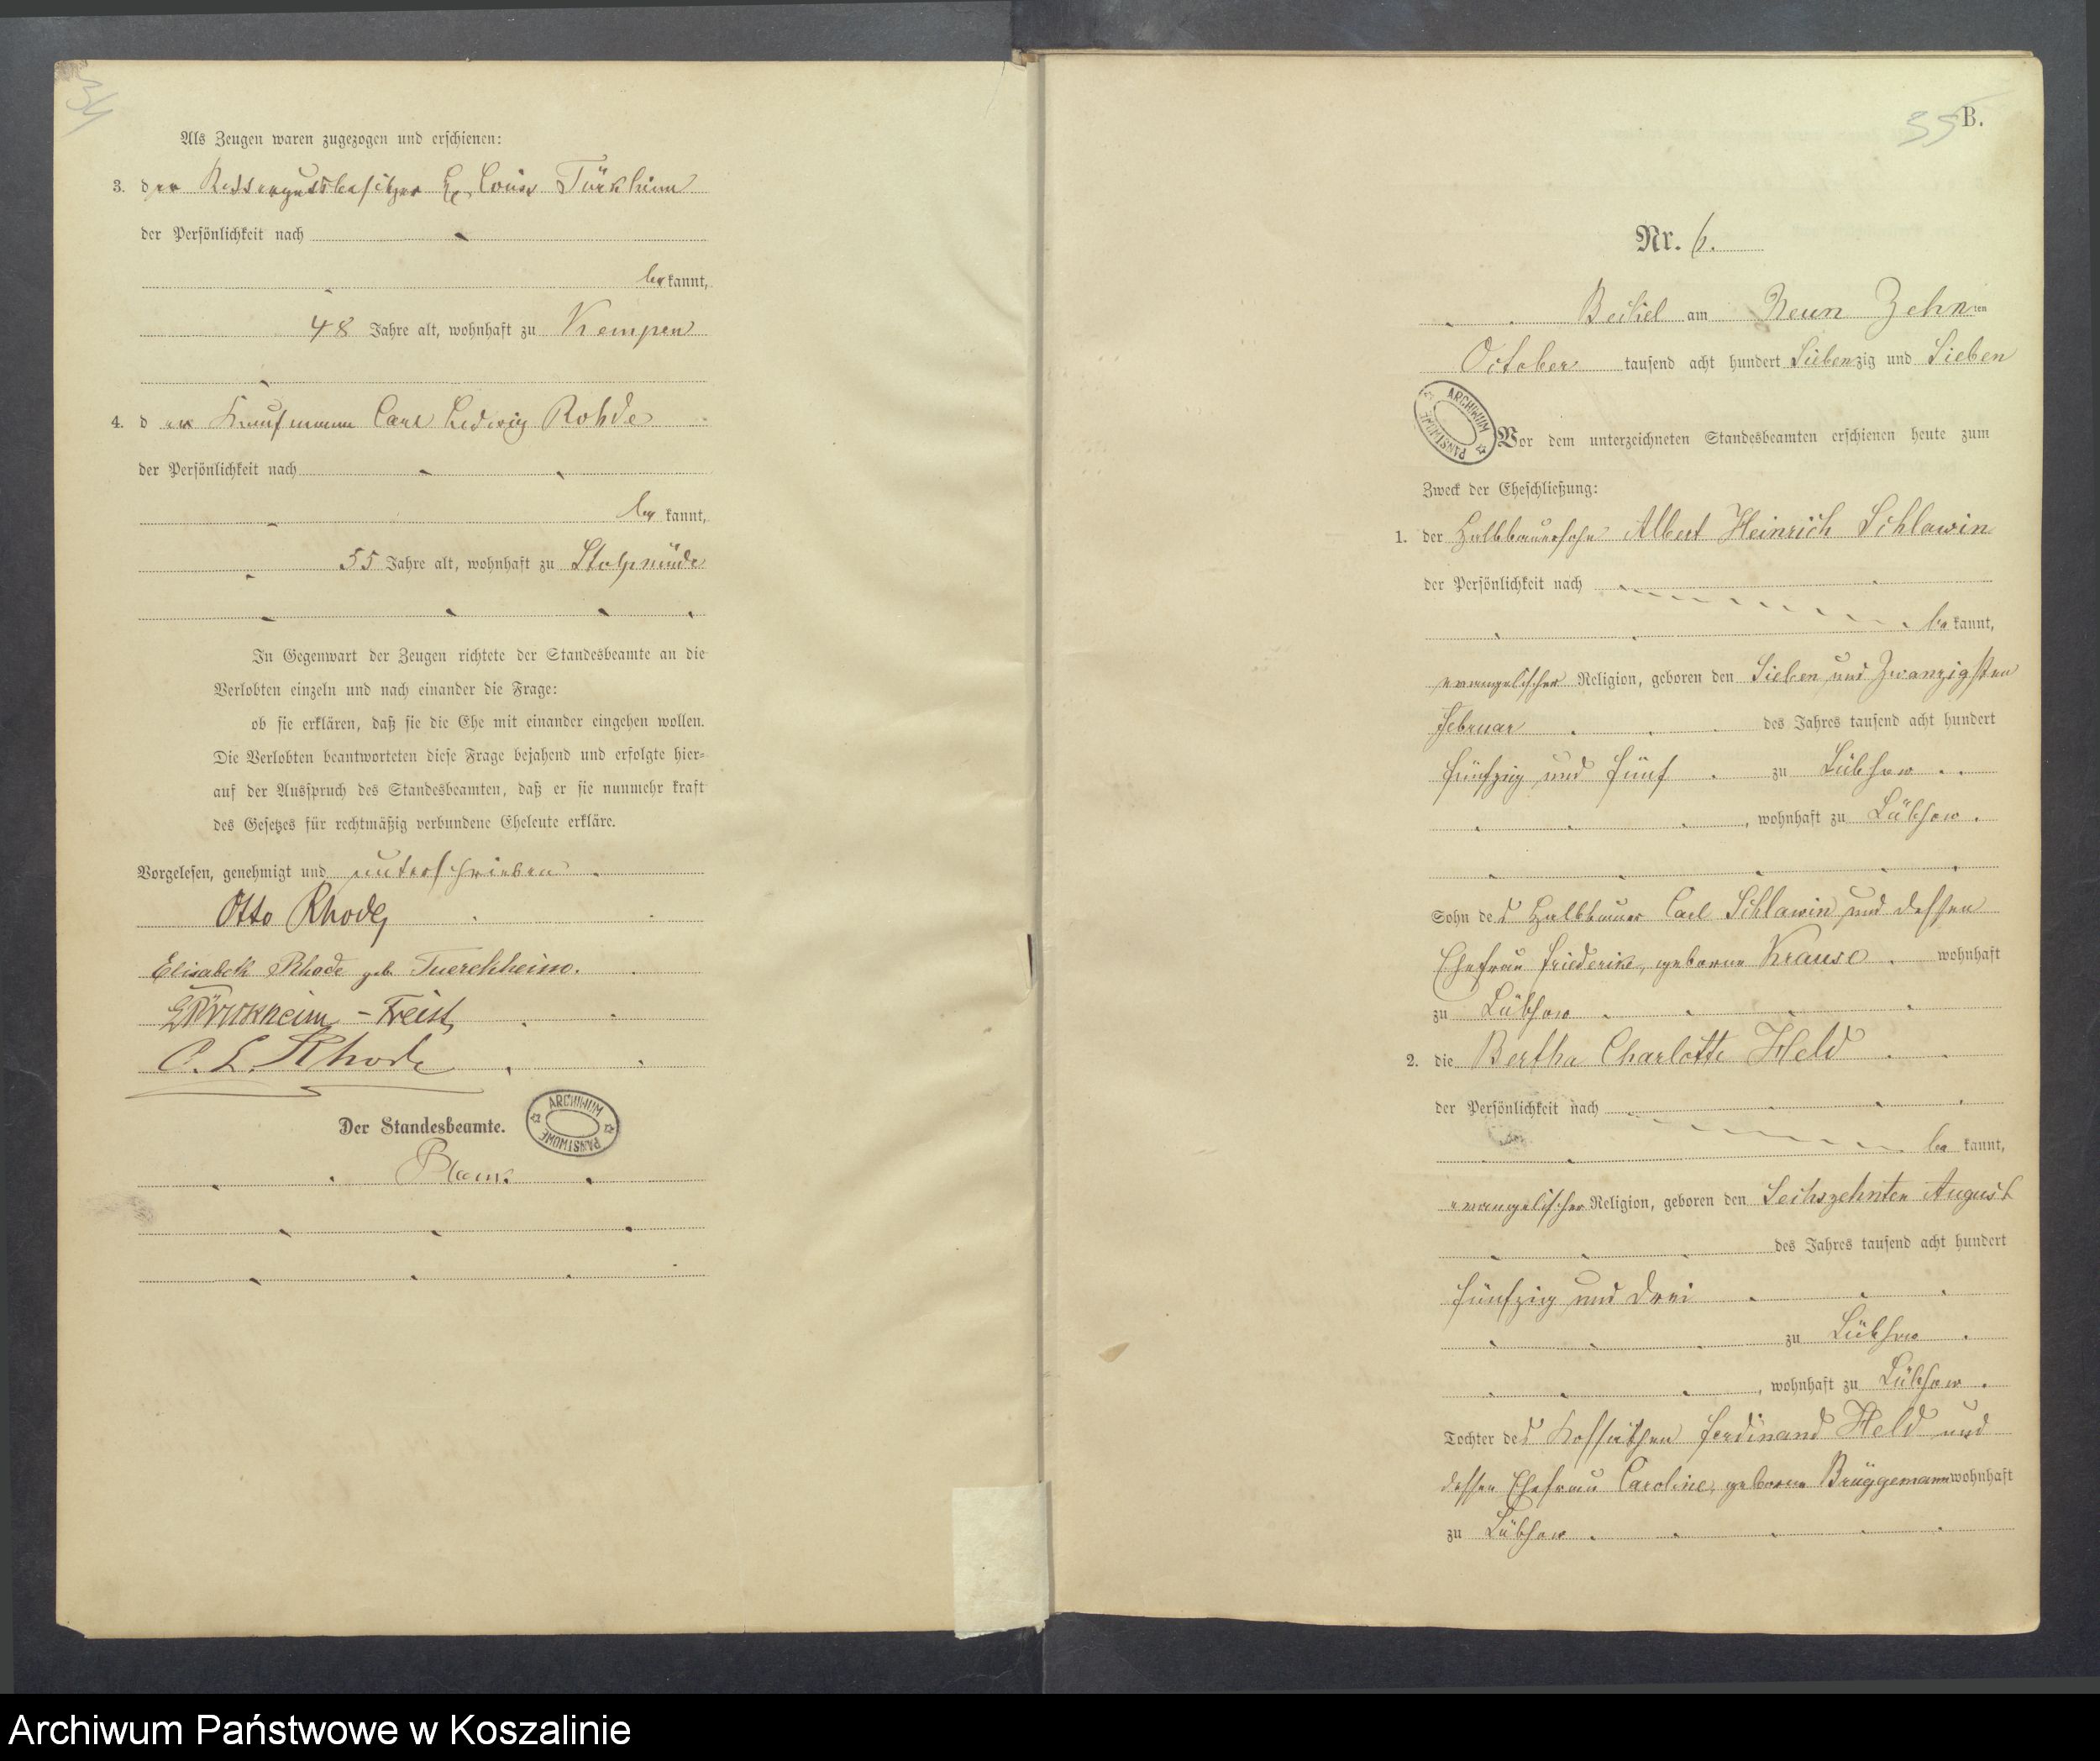 34
Als Zeugen waren zugezogen und erschienen:
3. der Rittergutsbesitzer Louis Türkheim
der Persönlichkeit nach
bekannt,
48 Jahre alt, wohnhaft zu Kempen
4. der Kaufmann Carl Ludwig Rohde
der Persönlichkeit nach
bekannt,
55 Jahre alt, wohnhaft zu Stolpmünde
In Gegenwart der Zeugen richtete der Standesbeamte an die
Verlobten einzeln und nach einander die Frage:
ob sie erklären, daß sie die Ehe mit einander eingehen wollen.
Die Verlobten beantworteten diese Frage bejahend und erfolgte hier=
auf der Ausspruch des Standesbeamten, daß er sie nunmehr kraft
des Gesetzes für rechtmäßig verbundene Eheleute erkläre.
Vorgelesen, genehmigt und unterschrieben
Otto Rhode
Elisabeth Rhode geb. Tuerckheim.
Türckheim - Treist
C. L. Rhode
Der Standesbeamte.
ARCHIWUM PAŃSTWOWE
35 B.
Nr. 6.
Beckel am Neun Zehnten
October tausend acht hundert Siebenzig und Sieben
ARCHIWUM PAŃSTWOWE
Vor dem unterzeichneten Standesbeamten erschienen heute zum
Zweck der Eheschließung:
1. der Halbbauersohn Albert Heinrich Schlawin
der Persönlichkeit nach
bekannt,
evangelischer Religion, geboren den Sieben und Zwanzigsten
Februar des Jahres tausend acht hundert
fünfzig und fünf zu Lübsow
, wohnhaft zu Lübsow.
Sohn des Halbbauer Carl Schlawin und dessen
Ehefrau Friederike, geborne Krause. wohnhaft
zu Lübsow
2. die Bertha Charlotte Held
der Persönlichkeit nach
bekannt,
evangelischer Religion, geboren den Sechszehnten August
des Jahres tausend acht hundert
fünfzig und drei
zu Lübsow
, wohnhaft zu Lübsow.
Tochter des Kossäthen Ferdinand Held und
dessen Ehefrau Caroline, geborne Brüggemann wohnhaft
zu Lübsow
Archiwum Państwowe w Koszalinie